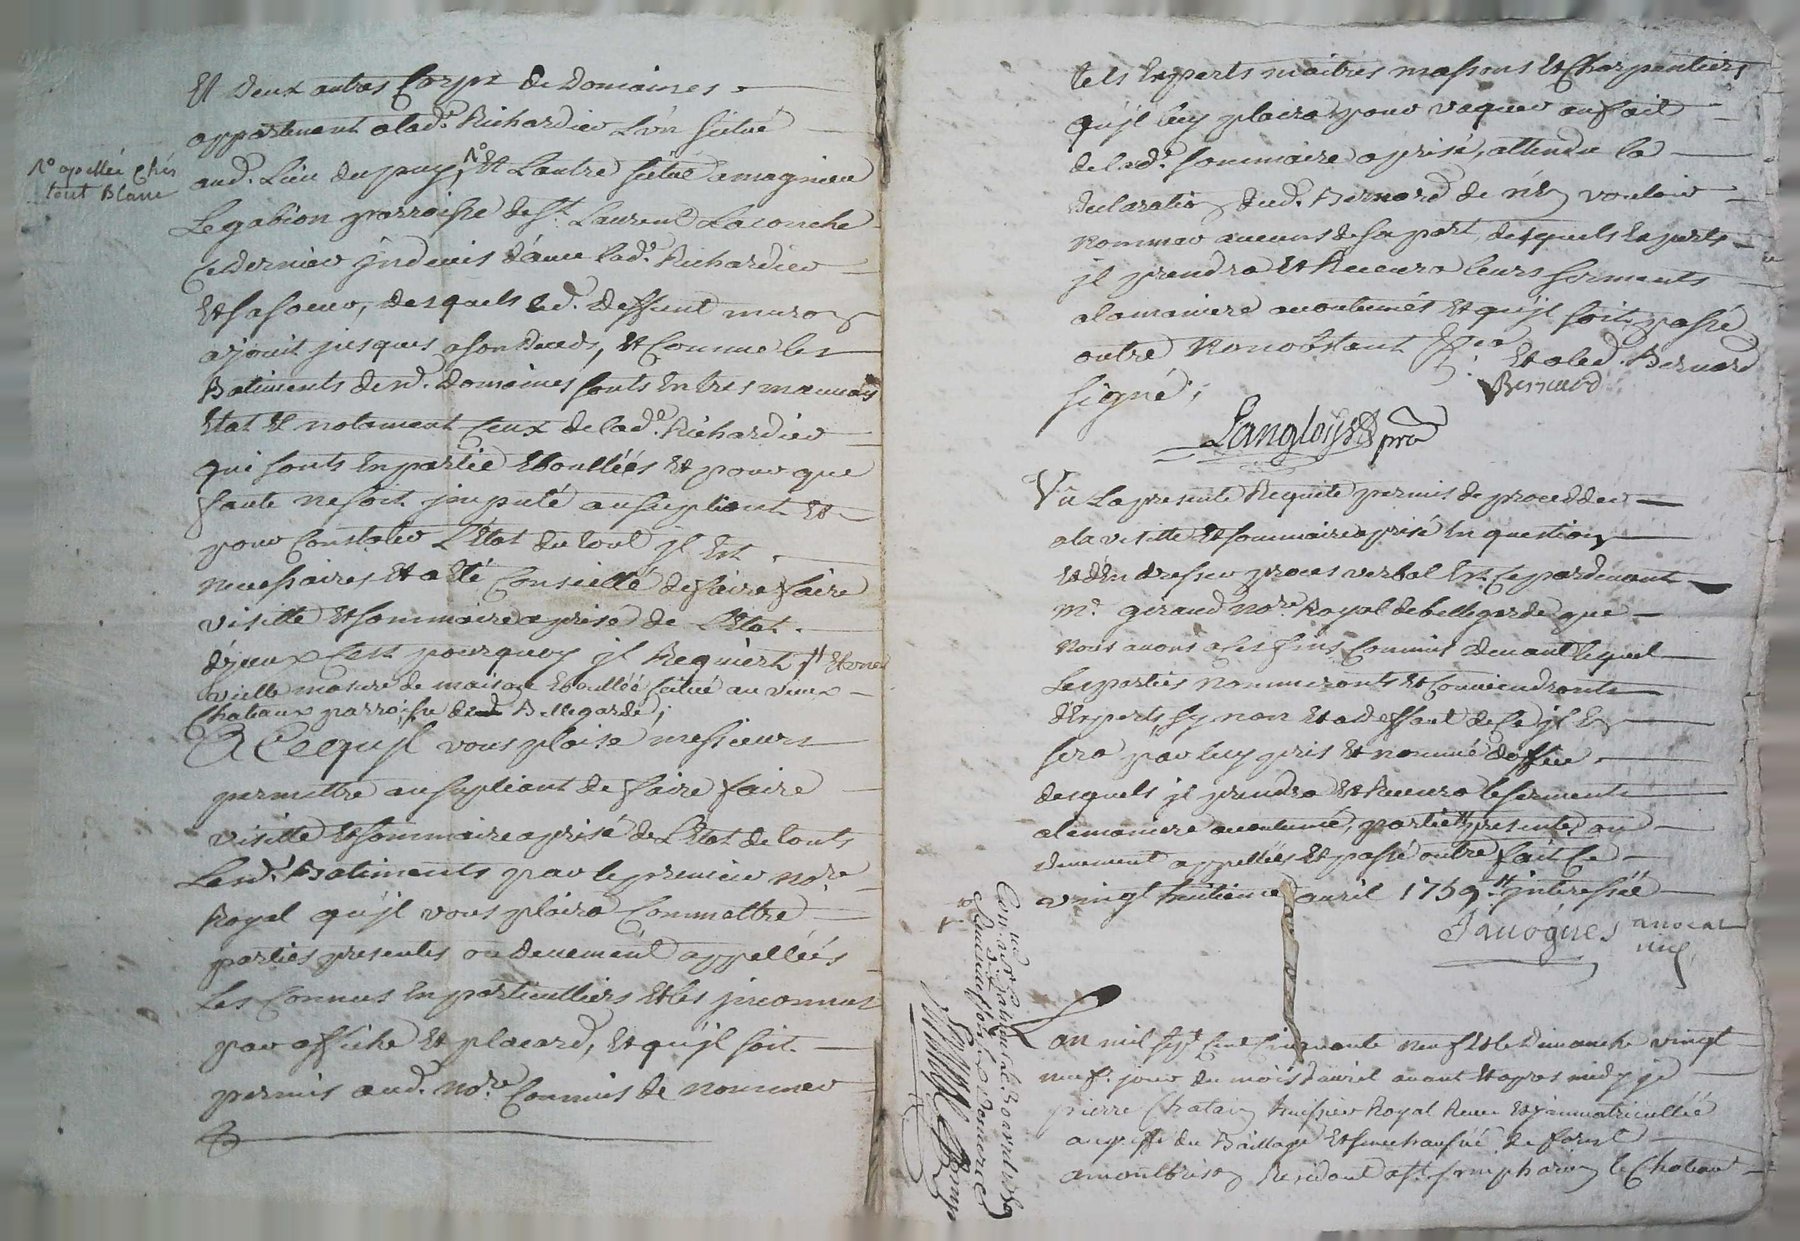 Et deux autres Corps de Domaines
appartenant a lad.e Richardier L'un situé
aud. Lieu du puy, 1° Et Lautre situé a magnieu
1° apellée chés
tout Blanc
Le gabion parroisse de St. Laurent Laconche
Ce dernier jndivis d'avec lad.e Richardier
Et sa soeur, desquels led. deffunt
a jouit jusques a son deceds, Et Comme les
Batiments desd. domaines sonts En tres mauvais
Etat Et notament Ceux de lad.e Richardier
qui sonts En partie Eboullées Et pour que
faute ne soit jmputé au supliant Et
pour Constater L'Etat du tout jl Est
necessaires Et a eté Conseillé de faire faire
visitte Et sommaire aprise de L'Etat
d'jceux C'est pourquoy jl Requiert Et une
vieille masure de maison Eboullée situé au vieux
Chateaux parroisse dud. Bellegarde;
A Ce qu'jl vous plaise messieurs
permettre au supliant de faire faire
visitte Et sommaire aprisé de L'Etat de touts
Lesd. Batiments par le premier no.re
Royal qu'jl vous plaira Commettre
parties presentes ou deuement appellées
Les Connus En particulliers Et les jnconnus
par affiche Et placard, Et qu'jl soit
permis aud. no.re Commis de nommer
tels Experts maitres massons Et Charpentiers
qu'jl luy plaira pour vaquer au fait
de lad.e sommaire aprisé, attendu la
declaration dud. Bernard de n'En vouloir
nommer aucuns de sa part, desquels Experts
jl prendra Et Recevra leurs serments
a la maniere accoutumés Et qu'jl soit passé
outre Nonobstant Et a led. Bernard
signé;
Bernard
Langlois pro.
Vû La presente Requete permis de proceddér
a la visitte Et sommaire aprisé En question
Et d'En dresser proces verbal Et Ce pardevant
m.e giraud no.re Royal de bellegarde que
Nous avons a Ces fins Commis devant lequel
Les parties nommeronts Et Conviendronts
d'Experts sy non Et a deffaut de Ce jl En
sera par luy pris Et nommé doffice
desquels jl prendra Et Recevra le serment
a la maniere accoutumé, parties presentes ou
deuement appellées Et passé outre fait Ce
vingt huitieme avril 1759
Janogues avocat
L'an mil sept Cent Cinquante neuf Et le dimanche vingt
neuf.e jour du mois d'avril avant Et apres midy je
pierre Chatain huissier Royal Receu Et jmmatricullée
au greffe du Baillage Et senechaussée de forest
a montbrison Residant a St. simphorien le Chateau